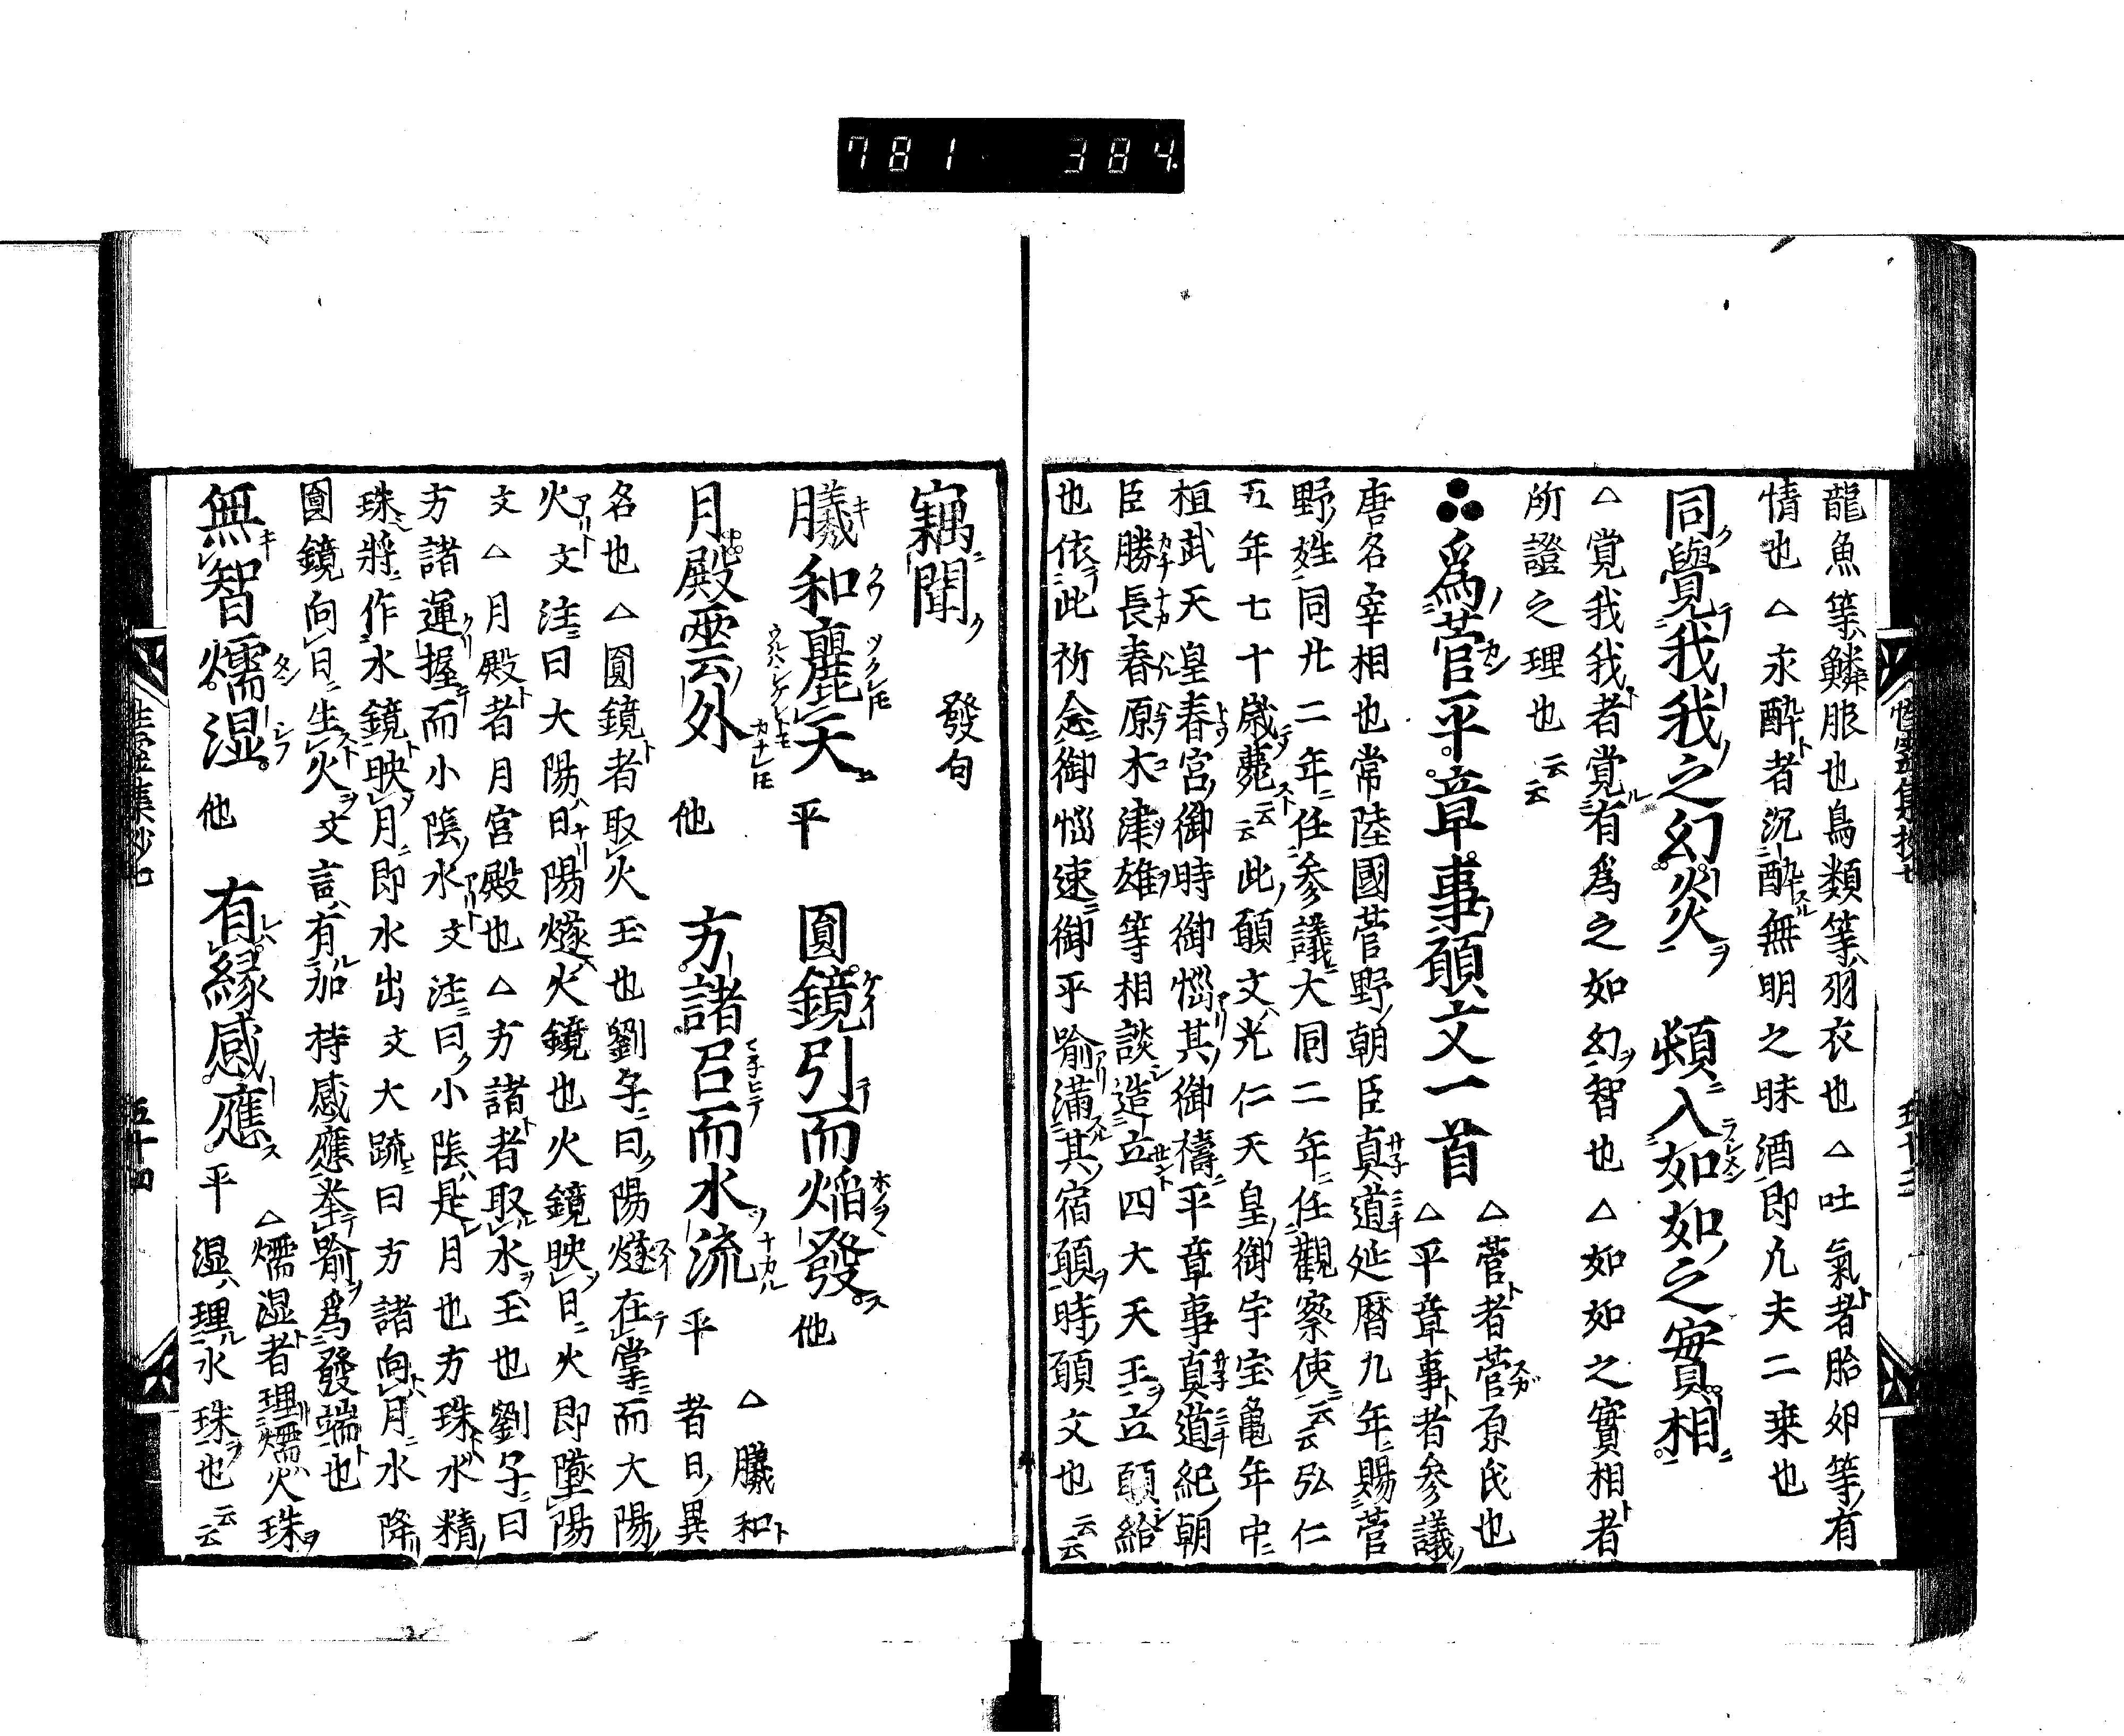 781 384
龍魚等鱗服也鳥類等羽衣也△吐氣者胎卵等有
情也△永醉者沉醉無明之昧酒即凢夫二乗也
同覺我我之幻炎 頻入如如之實相
△覚我我者覚有爲之如幻智也△如如之實相者
所證之理也云云
爲菅平章事願文一首
△菅者菅原氏也
△平章事者参議
唐名宰相也常陸國菅野朝臣真道延暦九年賜菅
野姓同廾二年任参議大同二年任觀察使云云弘仁
五年七十歳薨云云此願文光仁天皇御宇宝亀年中
桓武天皇春宮御時御惱其御禱平章事真道紀朝
臣勝長春原木津雄等相談造立四大天王立願給
也依此祈念御惱速御平喻満其宿願時願文也云云
竊聞 發句
曦和麗天平 圓鏡引而焔發他
月殿雲外他 方諸召而水流平
△曦和
者日異
名也△圓鏡者取火玉也劉子曰陽燧在掌而大陽
火文注曰大陽日陽燧火鏡也火鏡映日火即墮陽
文△月殿者月宮殿也△方諸者取水玉也劉子曰
方諸運握而小陰水文注曰小陰是月也方珠水精
珠將作水鏡映月即水出文大䟽曰方諸向月水降
圓鏡向日生火文言有加持感應挙喻爲發端也
無智燸湿他 有縁感應平
△燸湿者理燸火珠
湿理水珠也云云
性霊集抄七
五十四